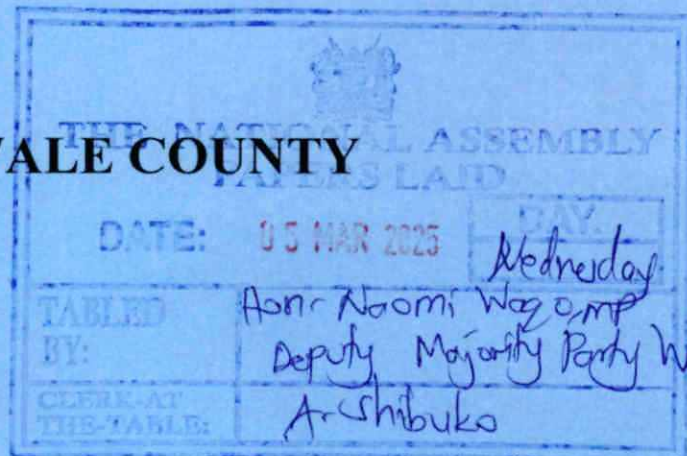 THE NATIONAL ASSEMBLY
WALE COUNTY
PAPERS LAID
DATE: 05 MAR 2025 DAY:
Wednesday
TABLED BY: Hon. Naomi Waqo, MP
Deputy Majority Party W
CLERK-AT THE-TABLE: A. Shibuko